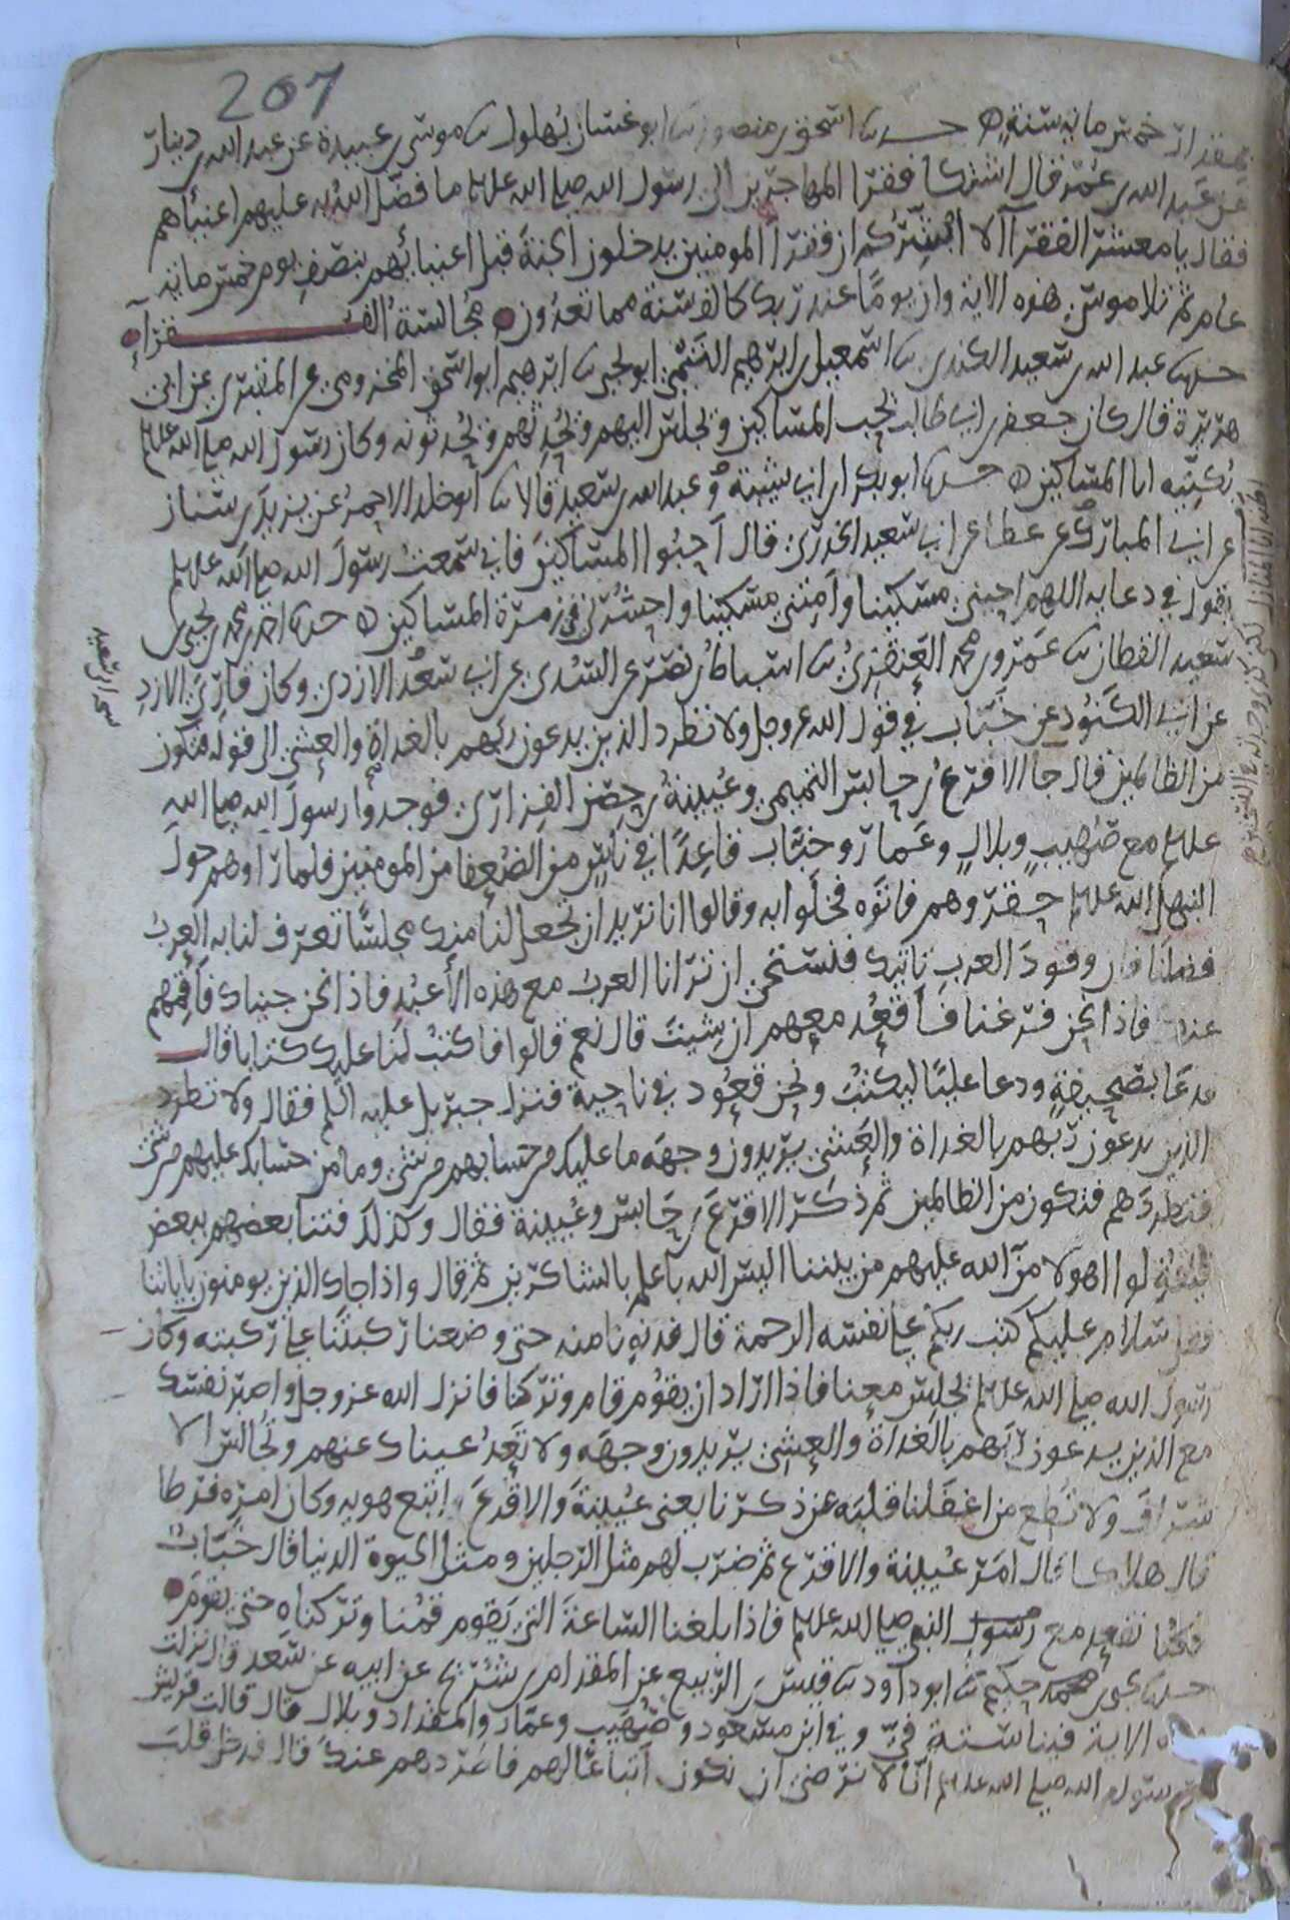 207
بمقدار خمس مائه سنة ه حدثنا اسحق بن منصور انا ابو غسان بهلول ثنا موسى بن عبيدة عن عبد الله بن دينار
عن عبد الله بن عمر قال اشتكا فقرا المهاجرين الى رسول الله صلى الله عليه وسلم ما فضل الله به عليهم اغنياهم
فقال يا معشر الفقرآ الا ابشركم ان فقرآ المومنين يدخلون الجنة قبل اغنيائهم بنصف يوم خمس مائه
عام ثم تلا موسى هذه الاية وان يوما عند ربك كالف سنة مما تعدون مجالسة الفقرآء
حدثنا عبد الله بن سعيد الكندي ثنا اسمعيل بن ابرهيم التيمي ابو يحيى ثنا ابرهيم ابو اسحق المخزومي عن المقبري عن ابي
هريرة قال كان جعفر بن ابي طالب يحب المساكين ويجلس اليهم ويحدثهم ويحدثونه وكان رسول الله صلى الله عليه وسلم
يكنيه ابا المساكين ه حدثنا ابو بكر بن ابي شيبة وعبد الله بن سعيد قالا ثنا ابو خلد الاحمر عن يزيد بن سنان
عن ابي المبارك عن عطا عن ابي سعيد الخدري قال احبوا المساكين فاني سمعت رسول الله صلى الله عليه وسلم
يقول في دعايه اللهم احيني مسكينا وامتني مسكينا واحشرني في زمرة المساكين ه حدثنا احمد بن محمد بن يحيى بن
سعيد القطان ثنا عمرو بن محمد العنقزي ثنا اسباط بن نصر عن السدي عن ابي سعد الازدي وكان قارئ الازد
عن ابي الكنود عن خباب في قول الله عز وجل ولا تطرد الذين يدعون ربهم بالغداة والعشي الى قوله فتكون
من الظالمين قال جا الاقرع بن حابس التميمي وعيينة بن حصن الفزاري فوجدوا رسول الله صلى الله
عليه وسلم مع صهيب وبلال وعمار وخباب قاعدا في ناس من الضعفا من المومنين فلما راوهم حول
النبي صلى الله عليه وسلم حقروهم فاتوه فخلوا به وقالوا انا نريد ان تجعل لنا منك مجلسا تعرف لنا به العرب
فضلنا فان وفود العرب تاتيك فنستحي ان ترانا العرب مع هذه الاعبد فاذا نحن جيناك فاقمهم
عنك فاذا نحن فرغنا فاقعد معهم ان شيت قال نعم قالوا فاكتب لنا عليك كتابا قال
فدعا بصحيفة ودعا عليا ليكتب ونحن قعود في ناحية فنزل جبريل عليه السلم فقال ولا تطرد
الذين يدعون ربهم بالغداة والعشي يريدون وجهه ما عليك من حسابهم من شي وما من حسابك عليهم من شي
فتطردهم فتكون من الظالمين ثم ذكر الاقرع بن حابس وعيينة فقال وكذلك فتنا بعضهم ببعض
ليقولوا اهولا من الله عليهم من بيننا اليس الله باعلم بالشاكرين ثم قال واذا جاك الذين يومنون باياتنا
فقل سلام عليكم كتب ربكم على نفسه الرحمة قال فدنونا منه حتى وضعنا ركبنا على ركبته وكان
رسول الله صلى الله عليه وسلم يجلس معنا فاذا اراد ان يقوم قام وتركنا فانزل الله عز وجل واصبر نفسك
مع الذين يدعون ربهم بالغداة والعشي يريدون وجهه ولا تعد عيناك عنهم وتجالس الا
شراف ولا تطع من اغفلنا قلبه عن ذكرنا يعني عيينة والاقرع واتبع هويه وكان امره فرطا
قال هلاكا قال امر عيينة والاقرع ثم ضرب لهم مثل الرجلين ومثل الحيوة الدنيا قال خباب
فكنا نقعد مع النبي صلى الله عليه وسلم فاذا بلغنا الساعة التي يقوم قمنا وتركناه حتى يقوم
حدثنا يحيى بن حكيم ثنا ابو داود ثنا قيس بن الربيع عن المقدام بن شريح عن ابيه عن سعد قال نزلت
الاية فينا ستة في وفي ابن مسعود وصهيب وعمار والمقداد وبلال قال قالت قريش
رسول الله صلى الله عليه وسلم انا لا نرضى ان نكون اتباعا لهم فاطردهم عنك قال فدخل قلب